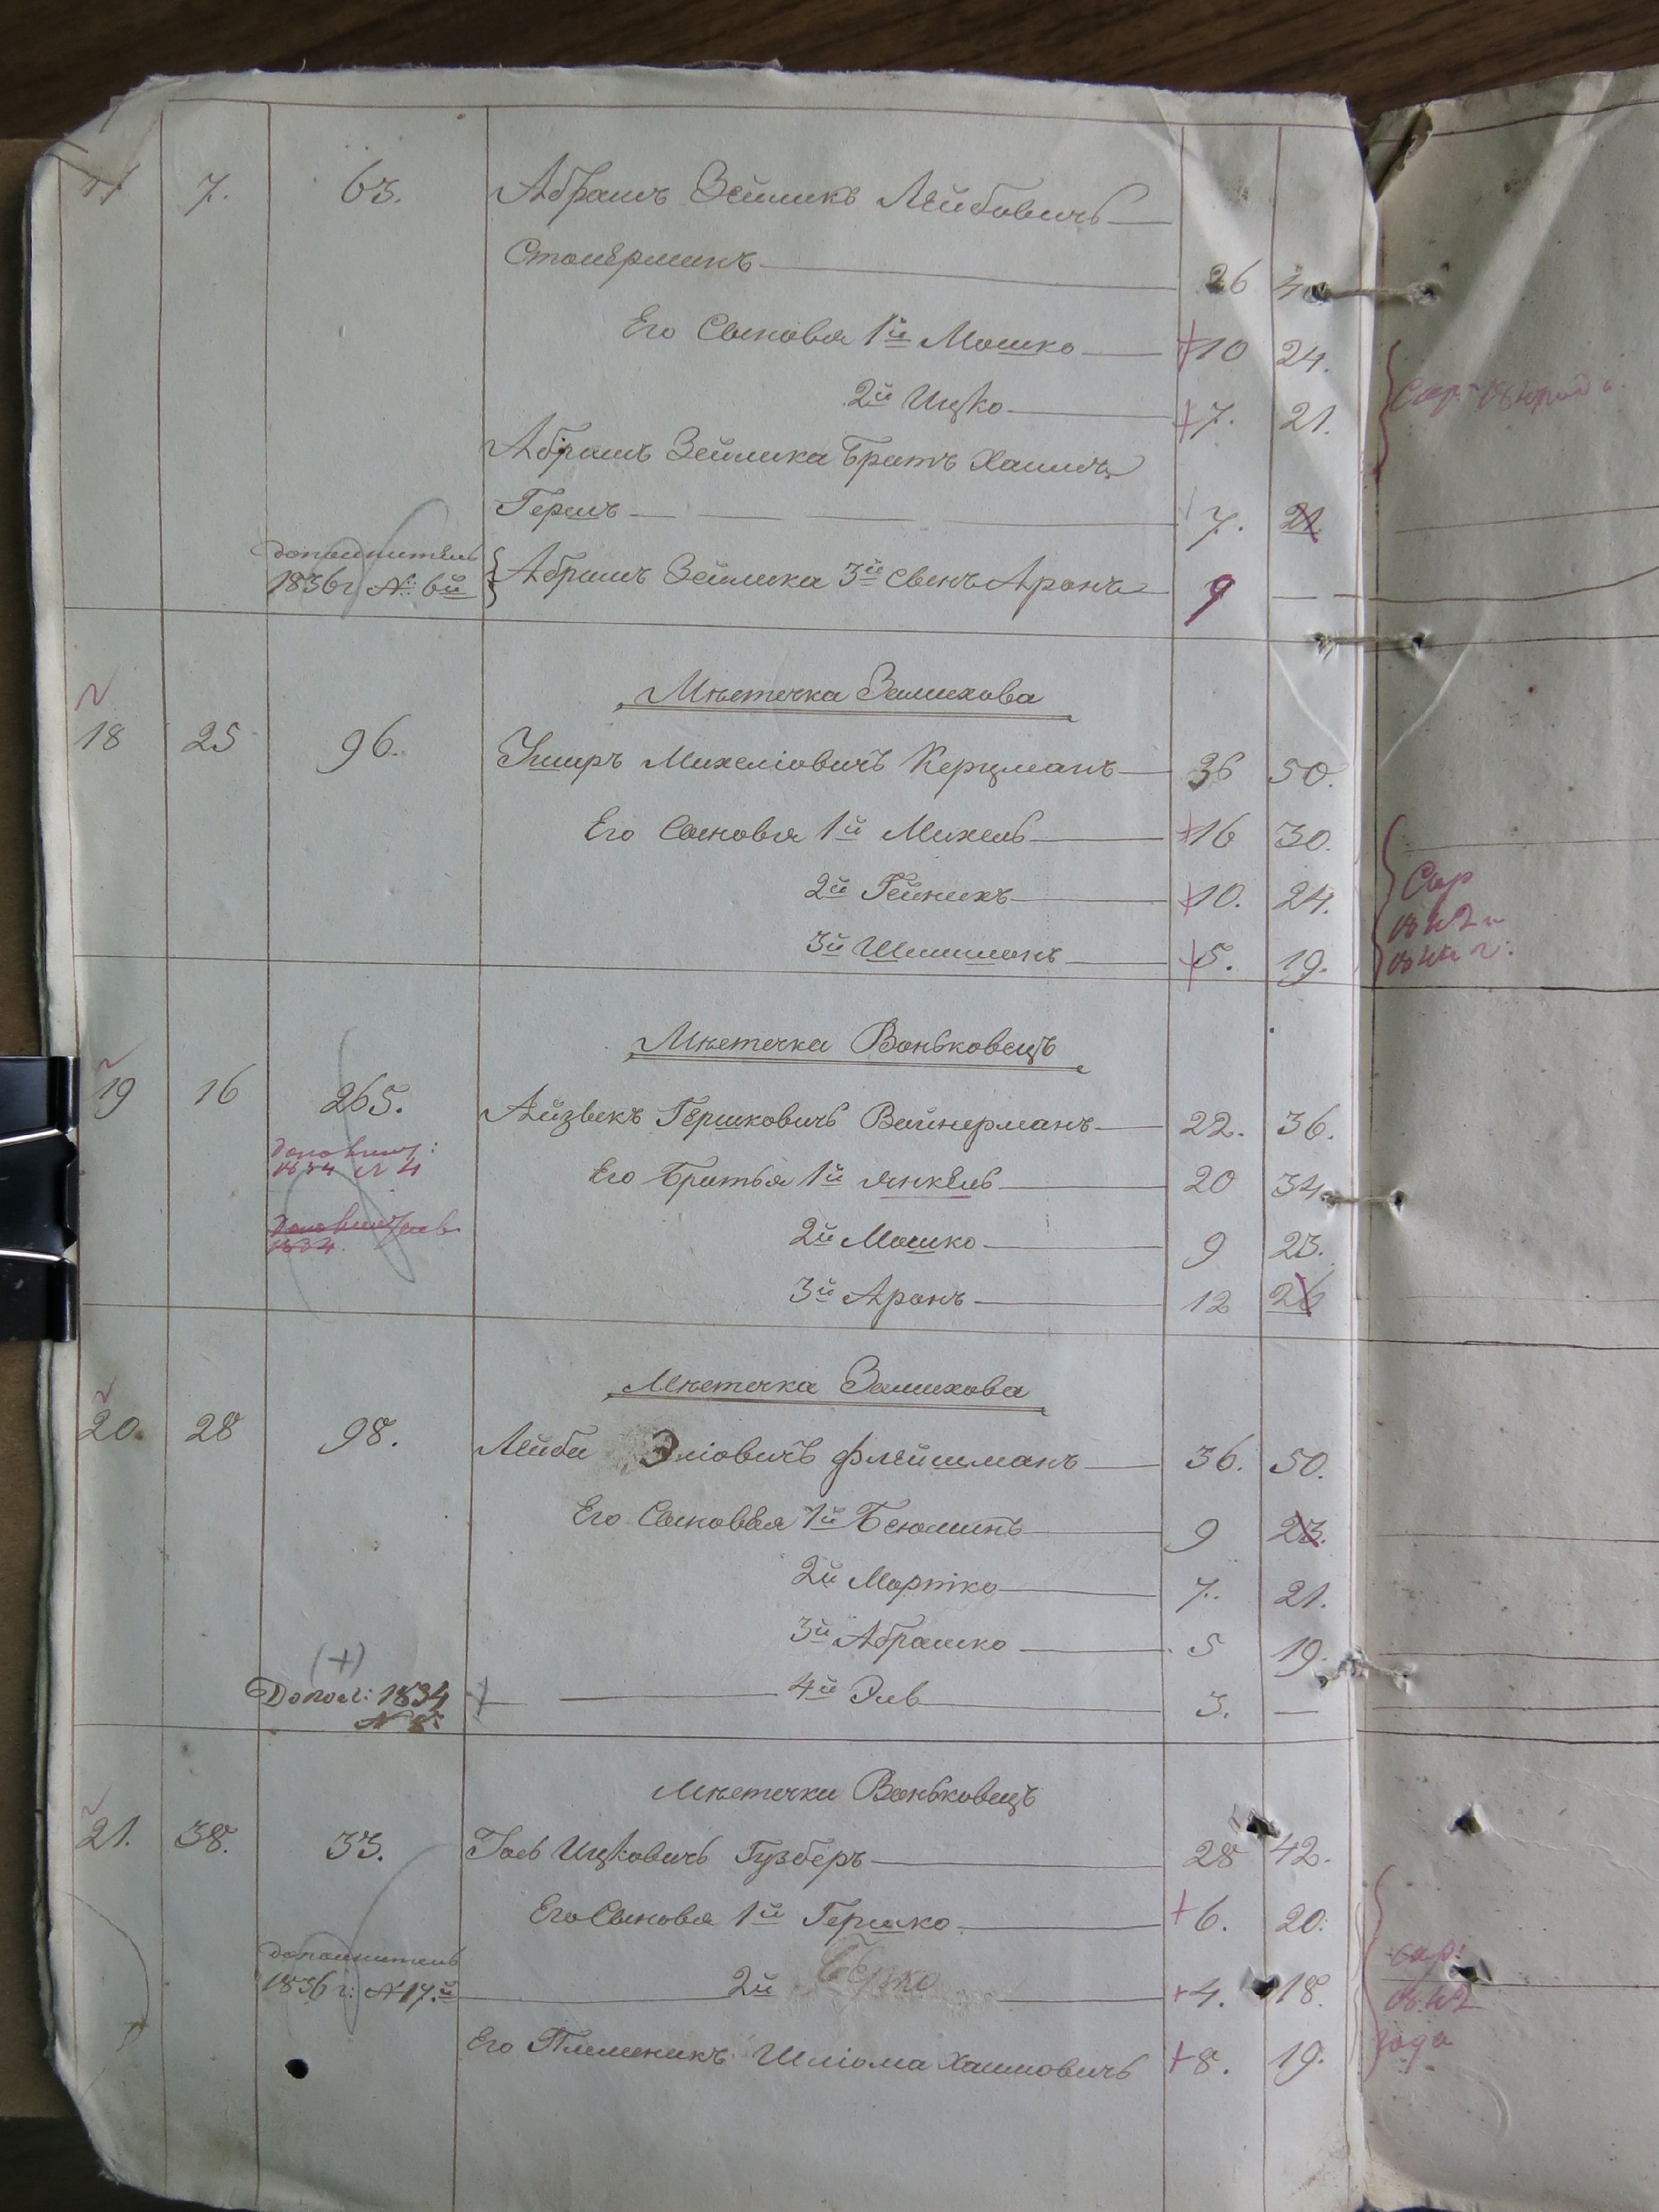 7. 63. Абрамъ Зейликъ Лейбовичъ
Столерманъ 26 40
Его Сыновья 1й Мошко +10 24.
2й Ицко +7. 21.
Абрамъ Зейлика Братъ Хаимъ
Гершъ 7. 21
дополнитель
1836 г № 6й Абрамъ Зейлика 3й сынъ Аронъ 9 —
Мѣстечка Замихова
18 25 96. Ушеръ Михеліовичъ Керцманъ 36 50.
Его Сыновья 1й Михель +16 30.
2й Гейнихъ +10. 24.
3й Шлимонъ +5. 19.
Мѣстечка Воньковецъ
19 16 265. Айзыкъ Гершковичъ Вайнерманъ 22. 36.
1834 № 4 Его Братья 1й Янкель 20 34
1834. 2й Мошко 9 23.
3й Аронъ 12 26
Мѣстечка Замихова
20. 28 98. Лейба Эліовичъ Флейшманъ 36. 50.
Его Сыновья 1й Беюминъ 9 23.
2й Мортко 7. 21.
3й Абрашко 5 19.
(+)
Допол: 1834 + 4й Эль 3. —
№ 8:
Мѣстечка Воньковецъ
21. 38. 33. Іось Ицковичъ Гузберъ 28 42.
Его Сыновья 1й Гершко +6. 20.
дополнитель
1836 г: № 17.й 2й Берко +4. 18.
Его Племеникъ Шліома Хаимовичъ +8. 19.
года